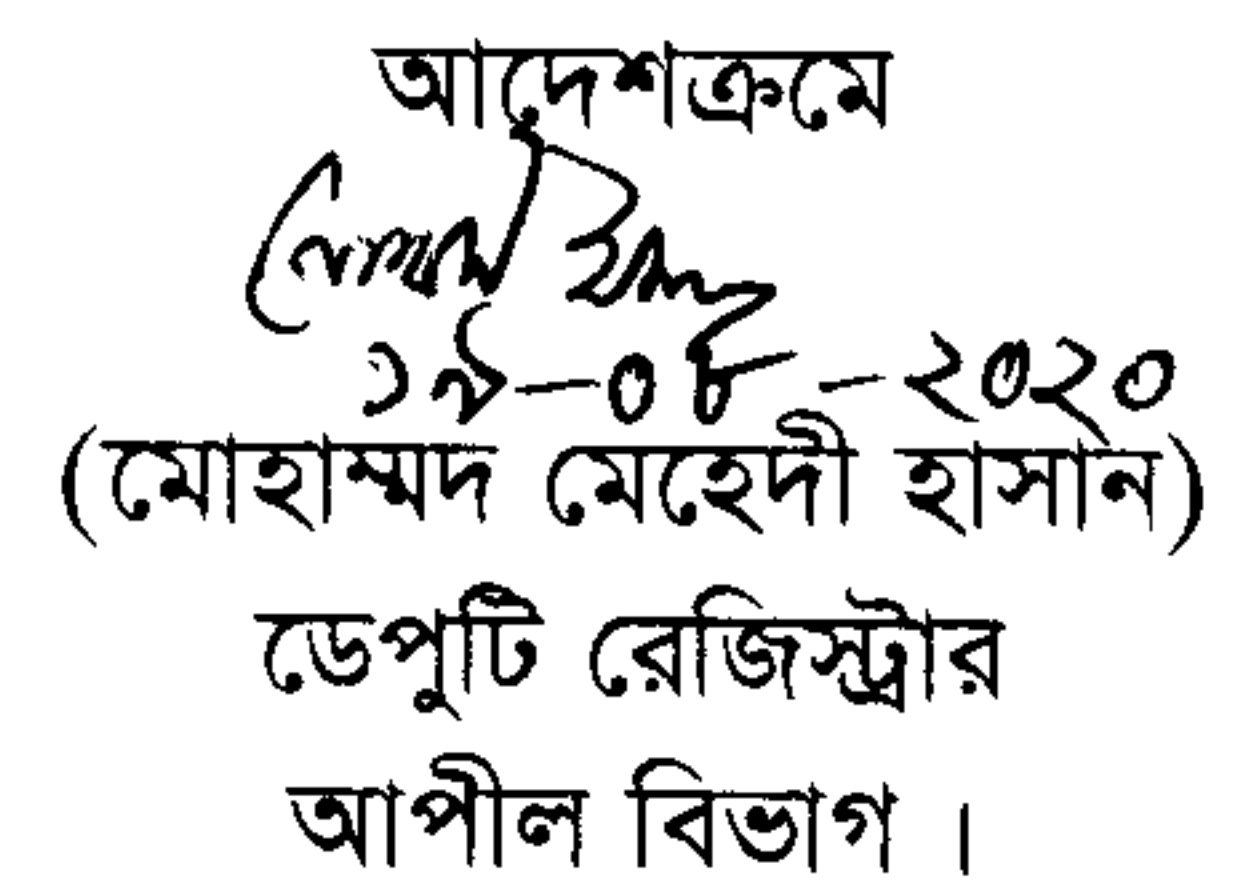 আদেশক্রমে
১৯-০৮-২০২০
(মোহাম্মদ মেহেদী হাসান)
ডেপুটি রেজিস্ট্রার
আপীল বিভাগ।